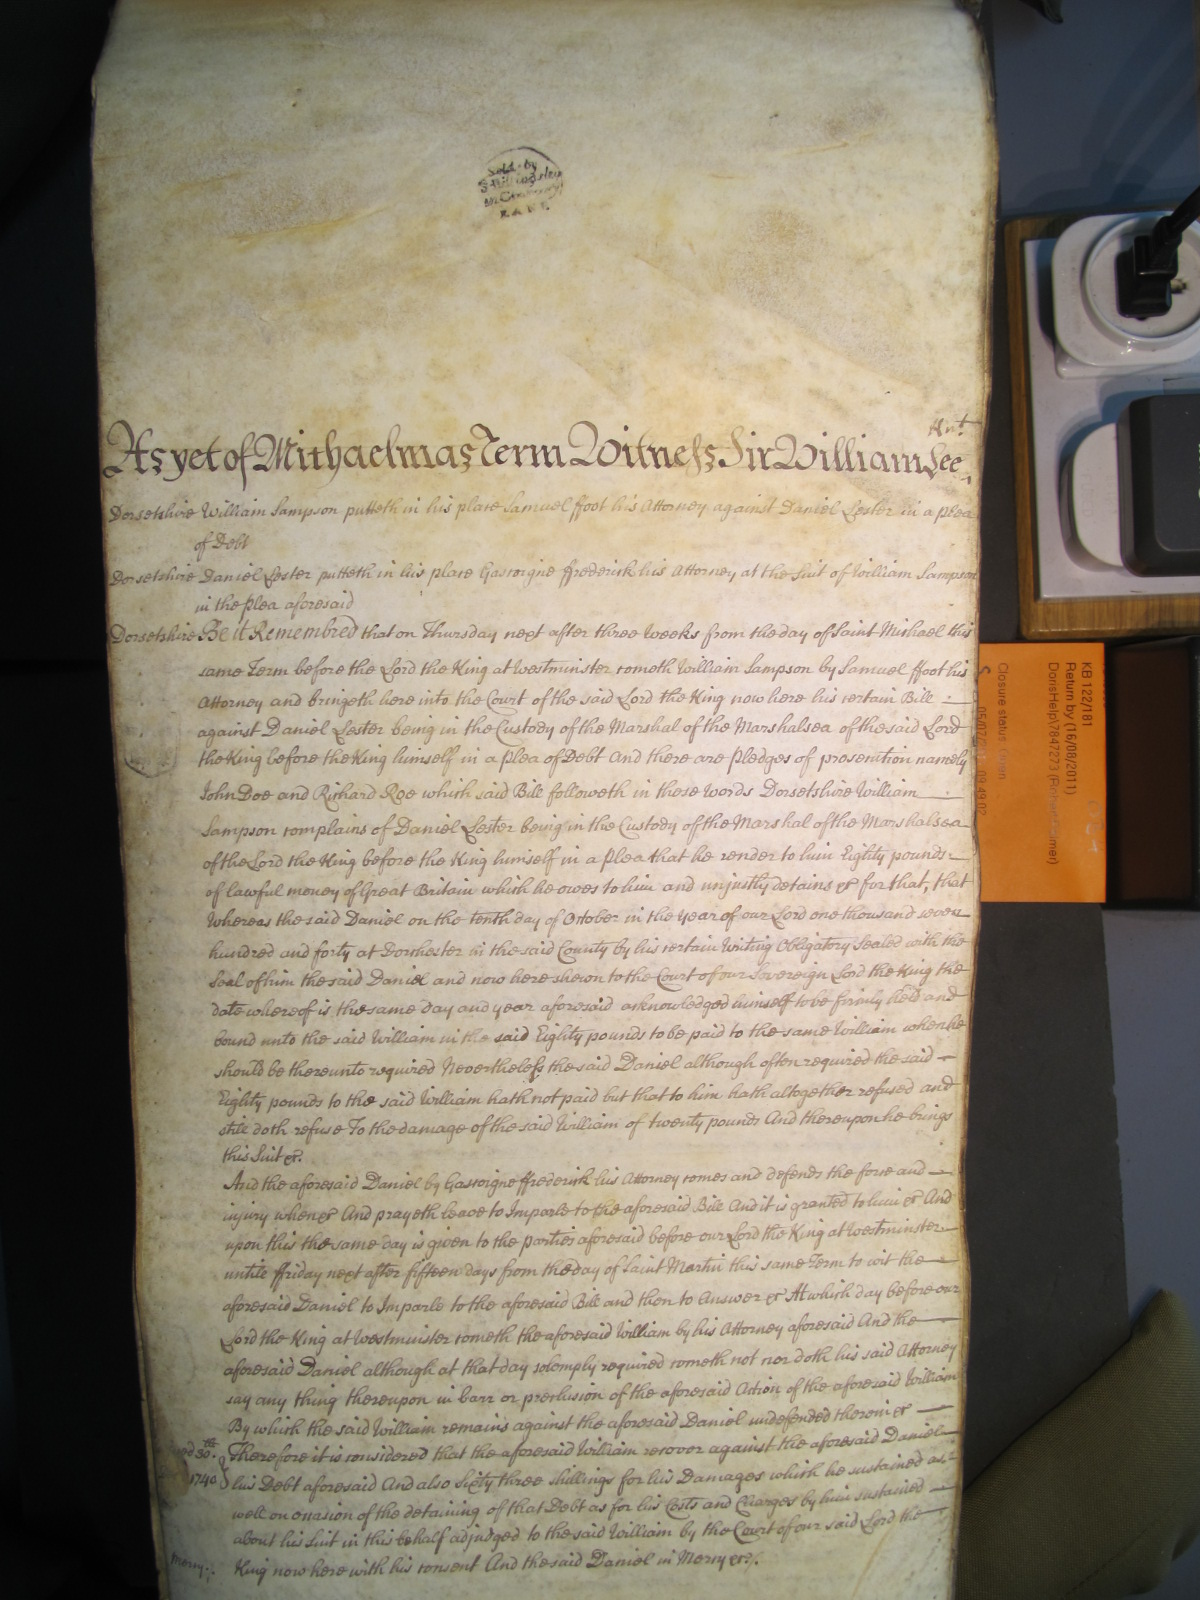 Sold by
in
LANE
Knt
As yet of Michaelmas Term Witness Sir William Lee
Dorsetshire William Sampson putteth in his place Samuel ffoot his Attorney against Daniel Lester in a plea
of Debt
Dorsetshire Daniel Lester putteth in his place Gascoigne ffrederick his Attorney at the Suit of William Sampson
in the Plea aforesaid
Dorsetshire Be it Remembred that on Thursday next after three Weeks from the day of Saint Michael this
same Term before the Lord the King at Westminster cometh William Sampson by Samuel ffoot his
Attorney and bringeth here into the Court of the said Lord the King now here his certain Bill
against Daniel Lester being in the Custody of the Marshal of the Marshalsea of the said Lord
the King before the King himself in a Plea of Debt And there are Pledges of prosecution namely
John Doe and Richard Roe which said Bill followeth in these Words Dorsetshire William
Sampson complains of Daniel Lester being in the Custody of the Marshal of the Marshalsea
of the Lord the King before the King himself in a Plea that he render to him Eighty pounds
of lawful money of Great Britain which he owes to him and unjustly detains &c for that, that
Whereas the said Daniel on the tenth day of October in the Year of our Lord one thousand seven
hundred and forty at Dorchester in the said County by his certain Writing Obligatory Sealed with the
Seal of him the said Daniel and now here shewn to the Court of our Sovereign Lord the King the
date whereof is the same day and year aforesaid acknowledged himself to be firmly held and
bound unto the said William in the said Eighty pounds to be paid to the same William when he
should be thereunto required Nevertheless the said Daniel although often required the said
Eighty pounds to the said William hath not paid but that to him hath altogether refused and
still doth refuse To the damage of the said William of twenty pounds And thereupon he brings
this Suit &c.
And the aforesaid Daniel by Gascoigne ffrederick his Attorney comes and defends the force and
injury when &c And prayeth leave to Imparle to the aforesaid Bill And it is granted to him &c And
upon this the same day is given to the parties aforesaid before our Lord the King at Westminster
untill ffriday next after fifteen days from the day of Saint Martin this same Term to wit the
aforesaid Daniel to Imparle to the aforesaid Bill and then to Answer &c At which day before our
Lord the King at Westminster cometh the aforesaid William by his Attorney aforesaid And the
aforesaid Daniel although at that day solemply required cometh not nor doth his said Attorney
say any thing thereupon in barr or preclusion of the aforesaid Action of the aforesaid William
By which the said William remains against the aforesaid Daniel undefended therein &c
30th. Therefore it is considered that the aforesaid William recover against the aforesaid Daniel
1740 his Debt aforesaid And also Sixty three shillings for his Damages which he sustained as
well on occasion of the detaining of that Debt as for his Costs and Charges by him sustained
about his Suit in this behalf adjudged to the said William by the Court of our said Lord the
Mercy. King now here with his consent And the said Daniel in Mercy &c.
KB 122/181
Return by (16/08/2011)
Closure status: Open